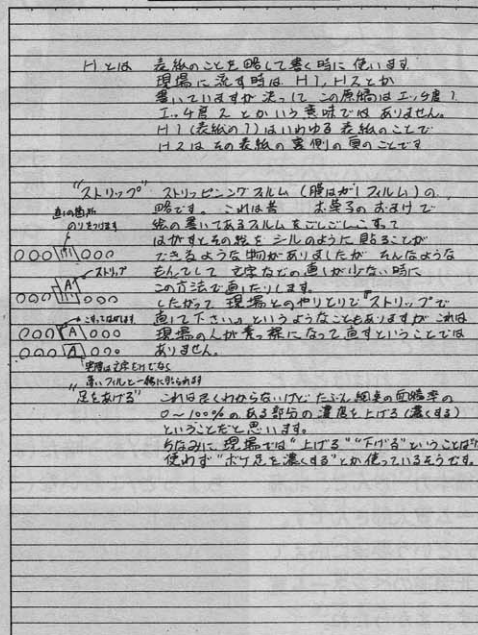 Hとは 表紙のことを略して書く時に使います
現場に流す時は H1, H2とか
書いていますが 決して この原稿はエッチ度1
エッチ度2 とかいう意味では ありません。
H1(表紙の1)はいわゆる表紙のことで
H2はその表紙の裏側の頁のことです
"ストリップ" ストリッピングフィルム(膜はがしフィルム)の
略です。これは昔 お菓子のおまけで
絵の書いてあるフィルムをごしごしこすって
はがすとその絵をシールのように貼ることが
できるような物がありましたが そんなような
もんでして 文字などの直しが少ない時に
この方法で直したりします。
したがって 現場とのやりとりで"ストリップで
直して下さい。"というようなこともありますが これは
現場の人が素っ裸になって直すということでは
ありません。
直しの箇所
のりをつけます
○○○ ○○○
ストリップ
A
○○○ ○○○
○○○ A ○○○
○○○ A ○○○
実際は文字だけでなく
薄いフィルムと一緒に貼られます
"足をあげる" これはよくわからないけど たぶん 網点の面積率の
0~100%のある部分の濃度を上げる(濃くする)
ということだと思います。
ちなみに 現場では"上げる""下げる"ということばは
使わず "ボケ足を濃くする"とか使っているそうです。